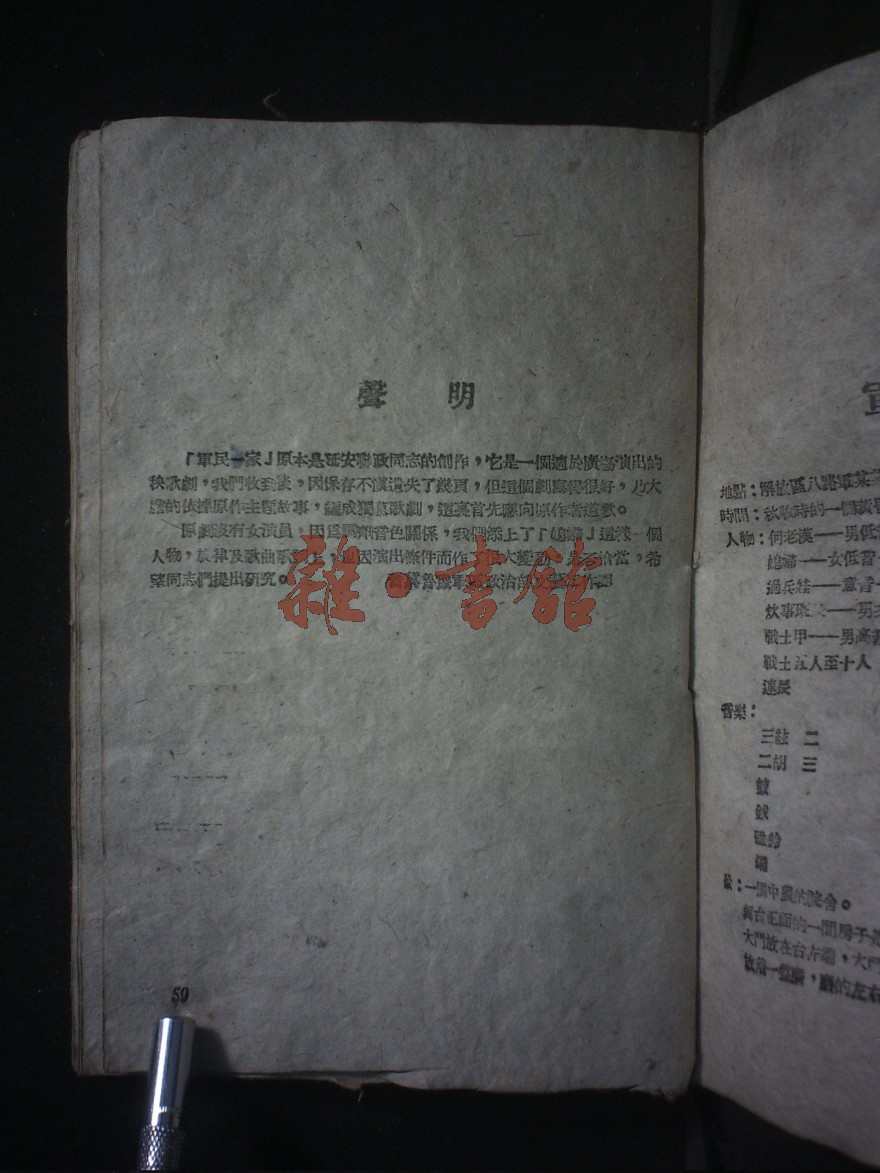 聲明
「軍民一家」原本是延安聯政同志的創作，它是一個適於廣場演出的
秧歌劇，我們收到後，因保存不慎遺失了幾頁，但這個劇寫得很好，乃大
膽的依據原作主題故事，編成獨幕歌劇，這裏首先應向原作者道歉。
原劇沒有女演員，因爲調劑音色關係，我們添上了「媳婦」這樣一個
人物，旋律及歌曲歌 也因演出條件而作了很大變動，是否恰當，希
望同志們提出研究。
雜·書館
50
地點：解放區八路軍某
時間：秋收時的一個黃昏
人物：何老漢——男低
媳婦——女低音
通兵娃——童音
炊事班長——男
戰士甲——男高音
戰士五人至十人
連長
音樂：
三絃 二
二胡 三
鼓
鈸
碰鈴
鑼
景：一個中農的院舍。
舞台正面的一間房子是
大門放在台左端，大門
放着一盤磨，磨的左右